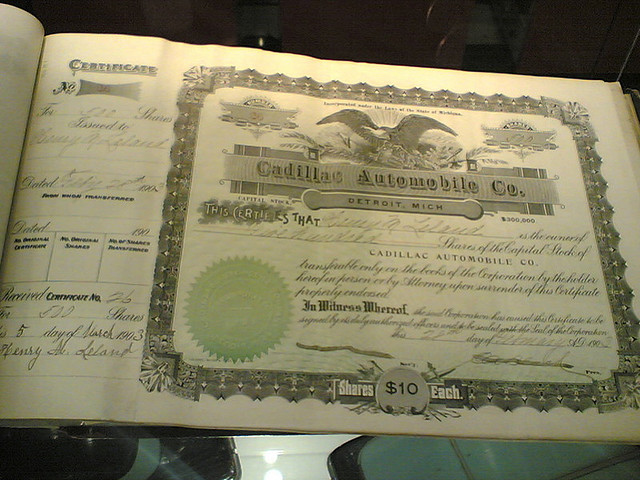 CERTIFICATE
No 26
For 500 Shares
Issued to
Henry M. Leland
Dated 1903
FROM WHOM TRANSFERRED
Dated 190
NO. ORIGINAL CERTIFICATE
NO. ORIGINAL SHARES
NO. OF SHARES TRANSFERRED
Received CERTIFICATE No. 26
For 500 Shares
5 day of March 1903
Henry M. Leland
Incorporated under the Laws of the State of Michigan.
Cadillac Automobile Co.
CAPITAL STOCK
DETROIT, MICH
$300,000
THIS CERTIFIES THAT Henry M. Leland is the owner of
Shares of the Capital Stock of
CADILLAC AUTOMOBILE CO.
transferable only on the books of the Corporation by the holder
hereof in person or by Attorney upon surrender of this Certificate
properly endorsed.
In Witness Whereof, the said Corporation has caused this Certificate to be
signed by its duly authorized officers and to be sealed with the Seal of the Corporation
this day of A.D. 190
Shares $10 Each.